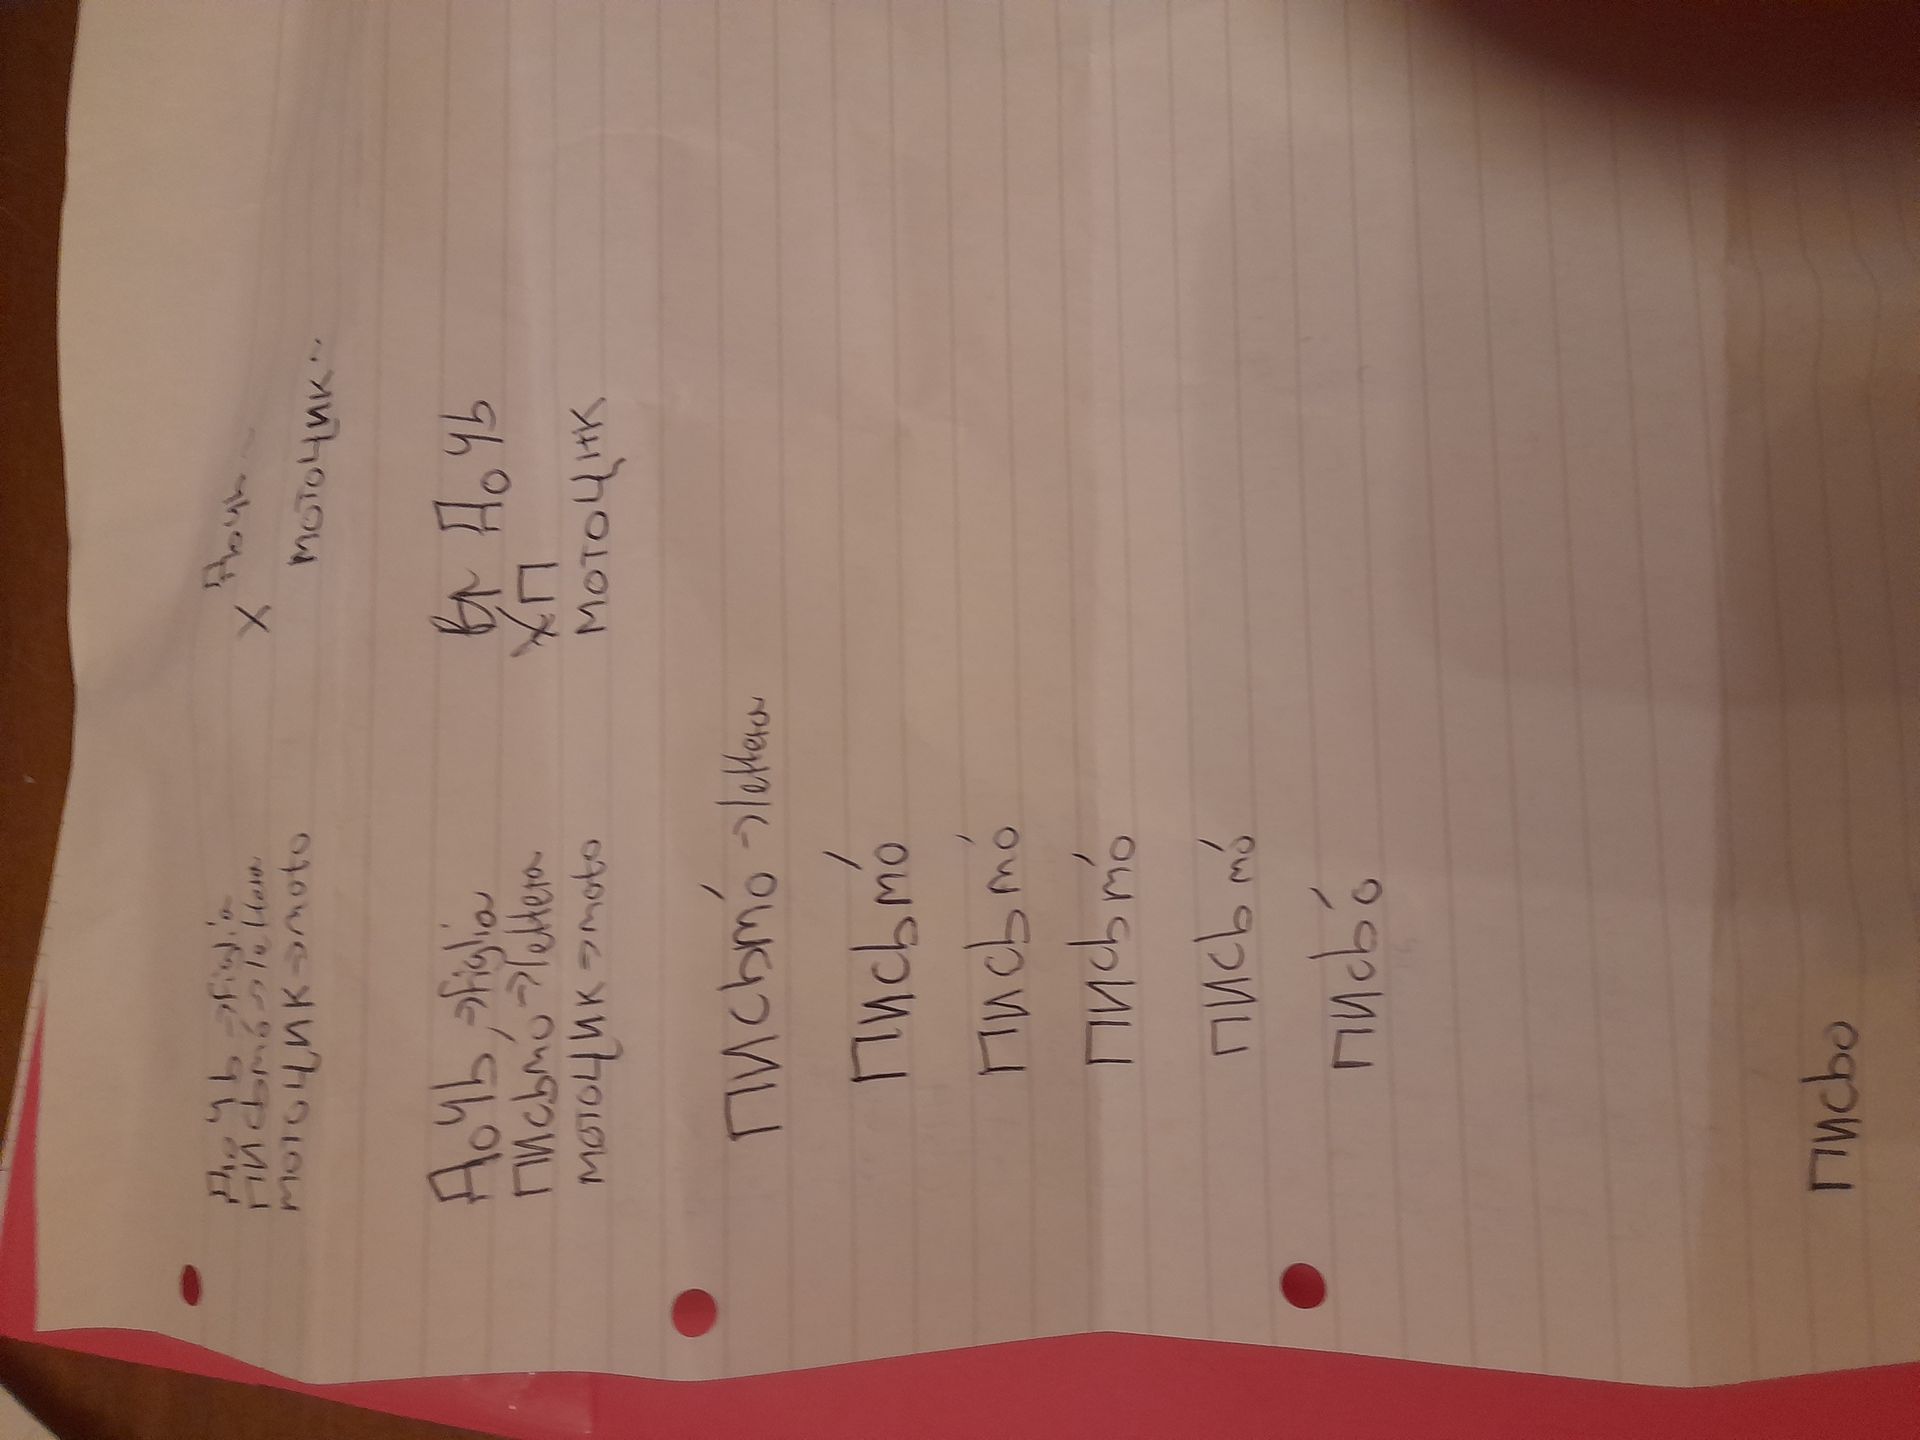 Дочь->figlia
письмо́->lettera X Дочь~
мотоцик->moto мотоцик~
Дочь->figlia Дочь
письмо->lettera П
мотоцик->moto мотоцнк
письмо́->lettera
письмо́
письмо́
письмо́
письмо́
письо́
письо